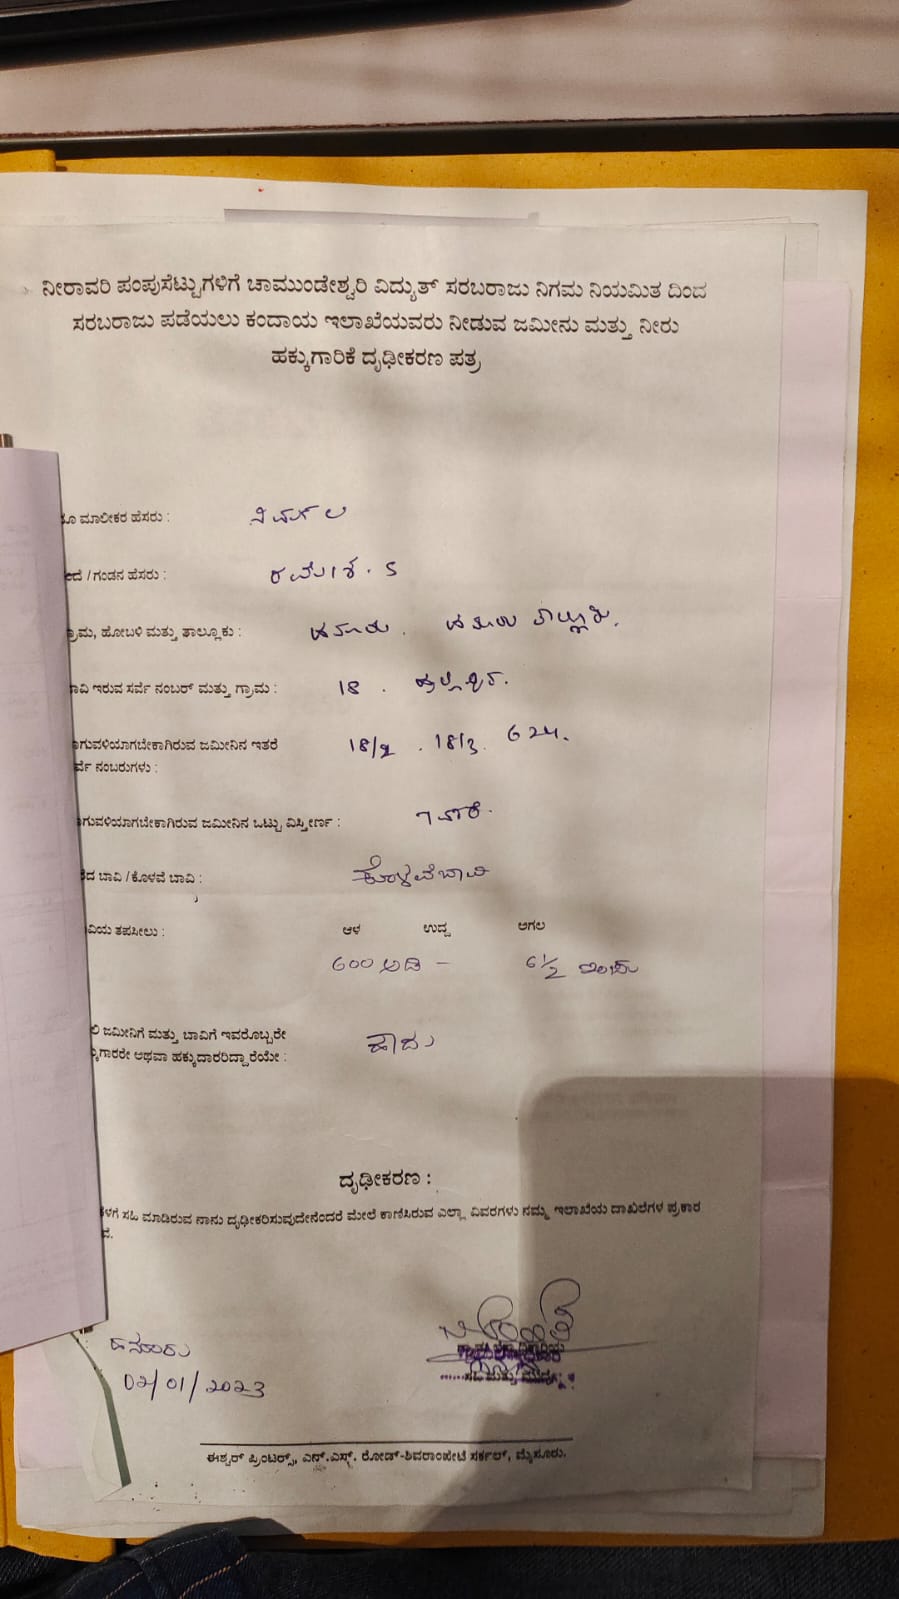 ನೀರಾವರಿ ಪಂಪುಸೆಟ್ಟುಗಳಿಗೆ ಚಾಮುಂಡೇಶ್ವರಿ ವಿದ್ಯುತ್ ಸರಬರಾಜು ನಿಗಮ ನಿಯಮಿತ ದಿಂದ
ಸರಬರಾಜು ಪಡೆಯಲು ಕಂದಾಯ ಇಲಾಖೆಯವರು ನೀಡುವ ಜಮೀನು ಮತ್ತು ನೀರು
ಹಕ್ಕುಗಾರಿಕೆ ದೃಢೀಕರಣ ಪತ್ರ
ಮಾಲೀಕರ ಹೆಸರು :
/ ಗಂಡನ ಹೆಸರು : ರಮೇಶ. S
ಹೋಬಳಿ ಮತ್ತು ತಾಲ್ಲೂಕು : ಹನೂರು. ಹನೂರು ತಾಲ್ಲೂಕು.
ಇರುವ ಸರ್ವೆ ನಂಬರ್ ಮತ್ತು ಗ್ರಾಮ : 18 .
ಗುವಳಿಯಾಗಬೇಕಾಗಿರುವ ಜಮೀನಿನ ಇತರೆ 18/2 . 18/3. 624.
ನಂಬರುಗಳು :
ಗುವಳಿಯಾಗಬೇಕಾಗಿರುವ ಜಮೀನಿನ ಒಟ್ಟು ವಿಸ್ತೀರ್ಣ :
ಬಾವಿ / ಕೊಳವೆ ಬಾವಿ : ಕೊಳವೆಬಾವಿ
ವಿಯ ತಪಸೀಲು : ಆಳ ಉದ್ದ ಅಗಲ
600 ಅಡಿ – 6 1/2 ಇಂಚು
ಜಮೀನಿಗೆ ಮತ್ತು ಬಾವಿಗೆ ಇವರೊಬ್ಬರೇ
ಗಾರರೇ ಅಥವಾ ಹಕ್ಕುದಾರರಿದ್ದಾರೆಯೇ : ಹೌದು
ದೃಢೀಕರಣ :
ಳಗೆ ಸಹಿ ಮಾಡಿರುವ ನಾನು ದೃಢೀಕರಿಸುವುದೇನೆಂದರೆ ಮೇಲೆ ಕಾಣಿಸಿರುವ ಎಲ್ಲಾ ವಿವರಗಳು ನಮ್ಮ ಇಲಾಖೆಯ ದಾಖಲೆಗಳ ಪ್ರಕಾರ
ವೆ.
ಹನೂರು
02/01/2023
ಸಹಿ ಮತ್ತು ಮುದ್ರೆ
ಈಶ್ವರ್ ಪ್ರಿಂಟರ್ಸ್, ಎನ್.ಎಸ್. ರೋಡ್-ಶಿವರಾಂಪೇಟೆ ಸರ್ಕಲ್, ಮೈಸೂರು.